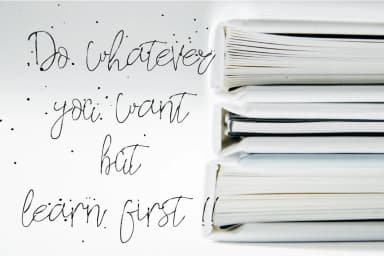 Do whatever
you want
but
learn first !!